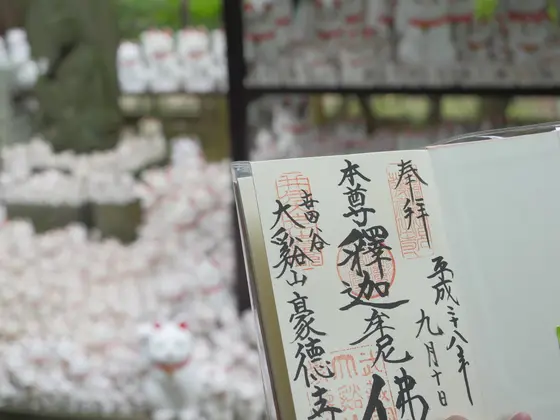 奉拝
平成二十八年
九月十日
本尊釋迦牟尼佛
世田谷
大谿山豪德寺